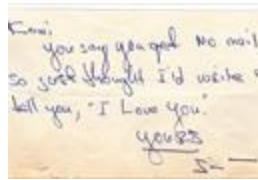 you say you get no mail
so just thought I'd write &
tell you, "I Love You".
yours
S-